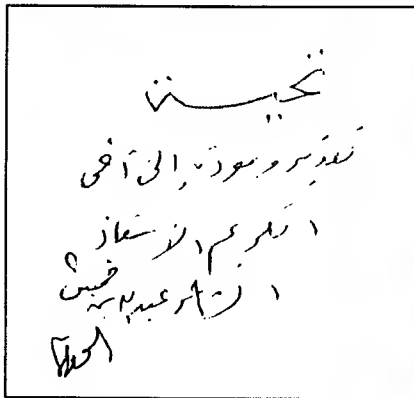 تحيـــة
تقدير ومودة إلى أخي
الكريم الأستاذ
الشاعر عبدالله بن خميس